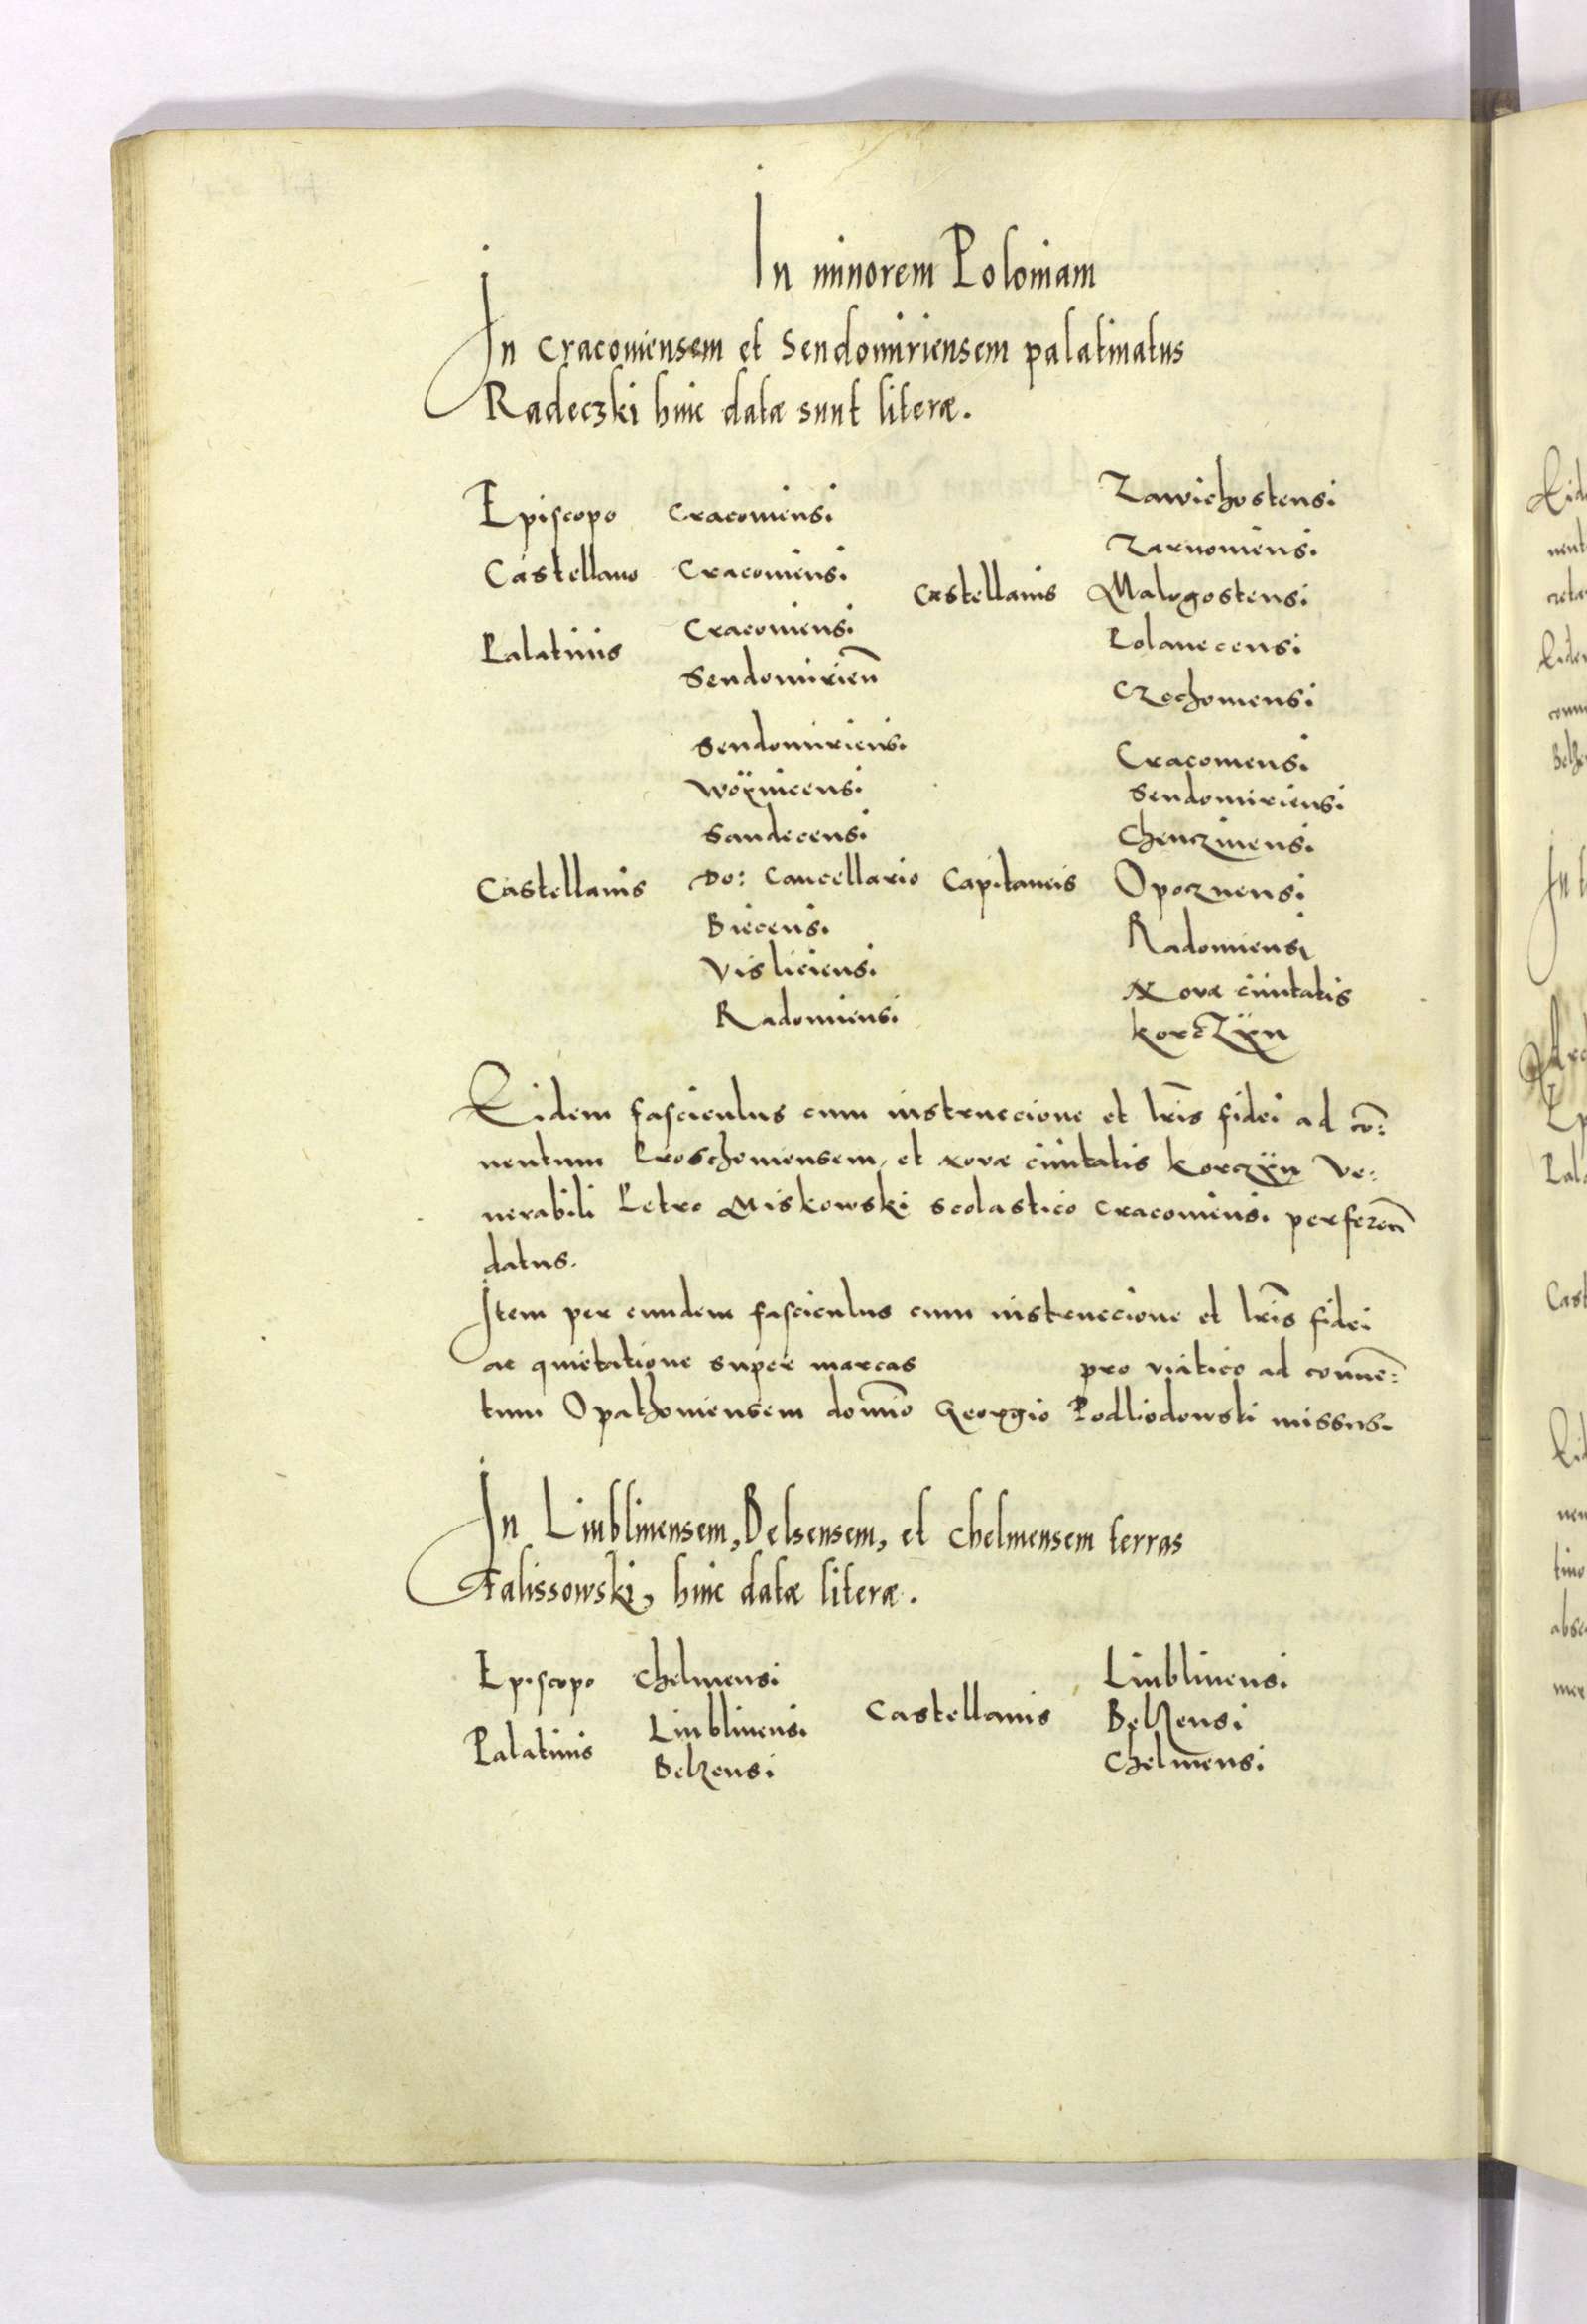 In minorem Poloniam
In Cracoviensem et Sendomiriensem palatinatus
Radeczki huic datæ sunt literæ.
Episcopo Cracoviensi
Castellano Cracoviensi
Palatinis
Cracoviensi
Sendomirien̄
Castellanis
Sendomiriensi
Woÿnicensi
Sandecensi
Do: Cancellario
Biecensi
Visliciensi
Radomiensi
Castellanis
Zawichostensi
Zarnoviensi
Malogostensi
Polanecensi
Czechoviensi
Capitaneis
Cracoviensi
Sendomiriensi
Chenczinensi
Opocznensi
Radomiensi
Novæ civitatis
Korczÿn
Eidem fasciculus cum instruccione et lr̄is fidei ad cō=
ventum Proschoviensem, et Novæ civitatis Korczÿn Ve=
nerabili Petro Miskowski scolastico Cracoviensi perferen̄
datus.
Item per eundem fasciculus cum instruccione et lr̄is fidei
ac quietatione super marcas pro viatico ad conven̄=
tum Opathoviensem domīo Georgio Podliodowski missus.
In Liublinensem, Belsensem, et Chelmensem terras
Falissowski, huic datæ literæ.
Episcopo Chelmensi
Palatinis
Liublinensi
Belzensi
Castellanis
Liublinensi
Belzensi
Chelmensi